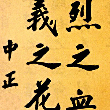 烈之血
義之花
中正